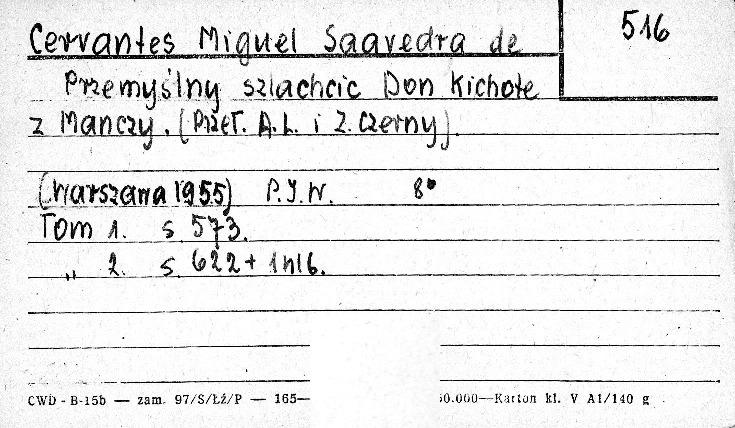 516
Cervantes Miguel Saavedra de
Przemyślny szlachcic Don Kichote
z Manczy. (Przeł. A.L. i Z. Czerny).
(Warszawa 1955) P.I.W. 8°
Tom 1. s 573.
„ 2. s. 622 + 1 nlb.
CWD - B-15b — zam. 97/S/Łź/P — 165— 50.000—Karton kl. V A1/140 g